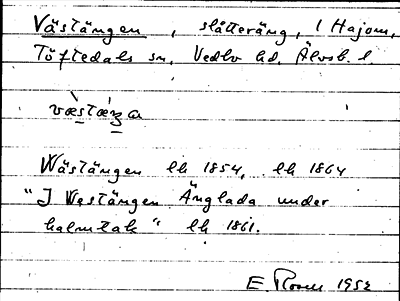 Västängen, slåtteräng, i Hajom,
Töftedals sn, Vedbo hd, Älvsb. l
væ̀stæ̀ŋa
Wästängen lh 1854, lh 1864
"I Westängen Änglada under
halmtak" lh 1861.
E. 1952